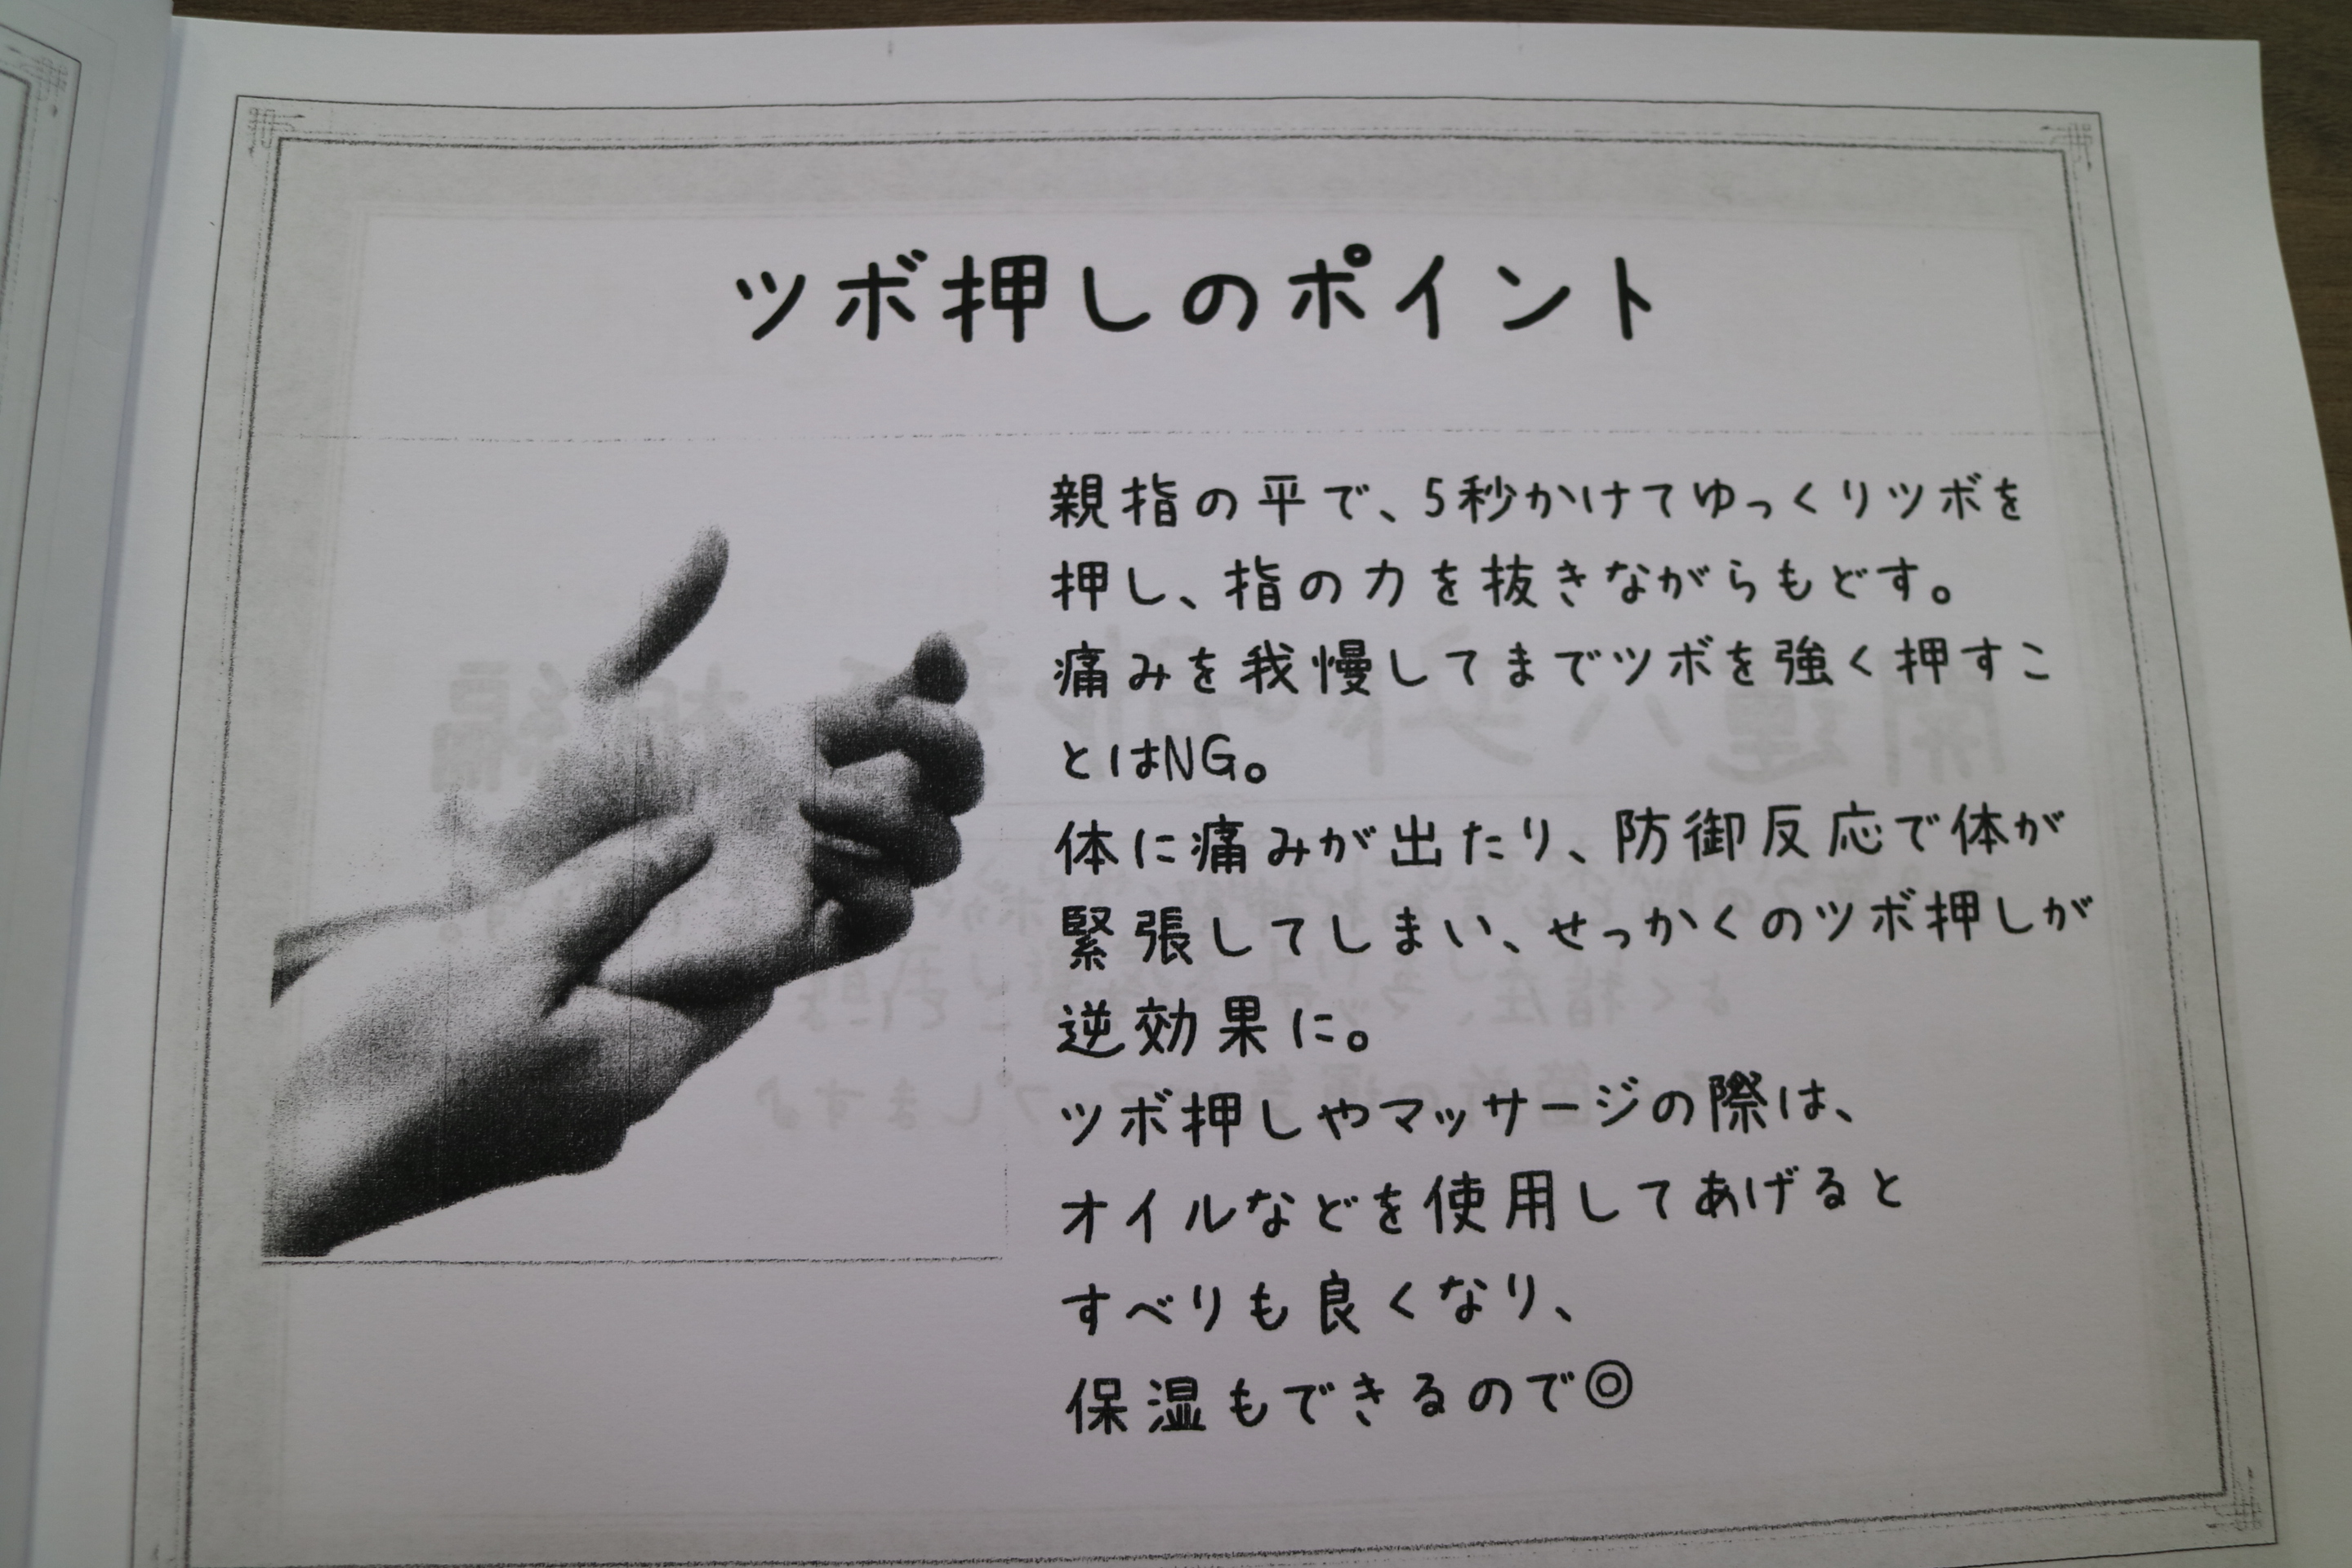 ツボ押しのポイント
親指の平で、5秒かけてゆっくりツボを
押し、指の力を抜きながらもどす。
痛みを我慢してまでツボを強く押すこ
とはNG。
体に痛みが出たり、防御反応で体が
緊張してしまい、せっかくのツボ押しが
逆効果に。
ツボ押しやマッサージの際は、
オイルなどを使用してあげると
すべりも良くなり、
保湿もできるので◎